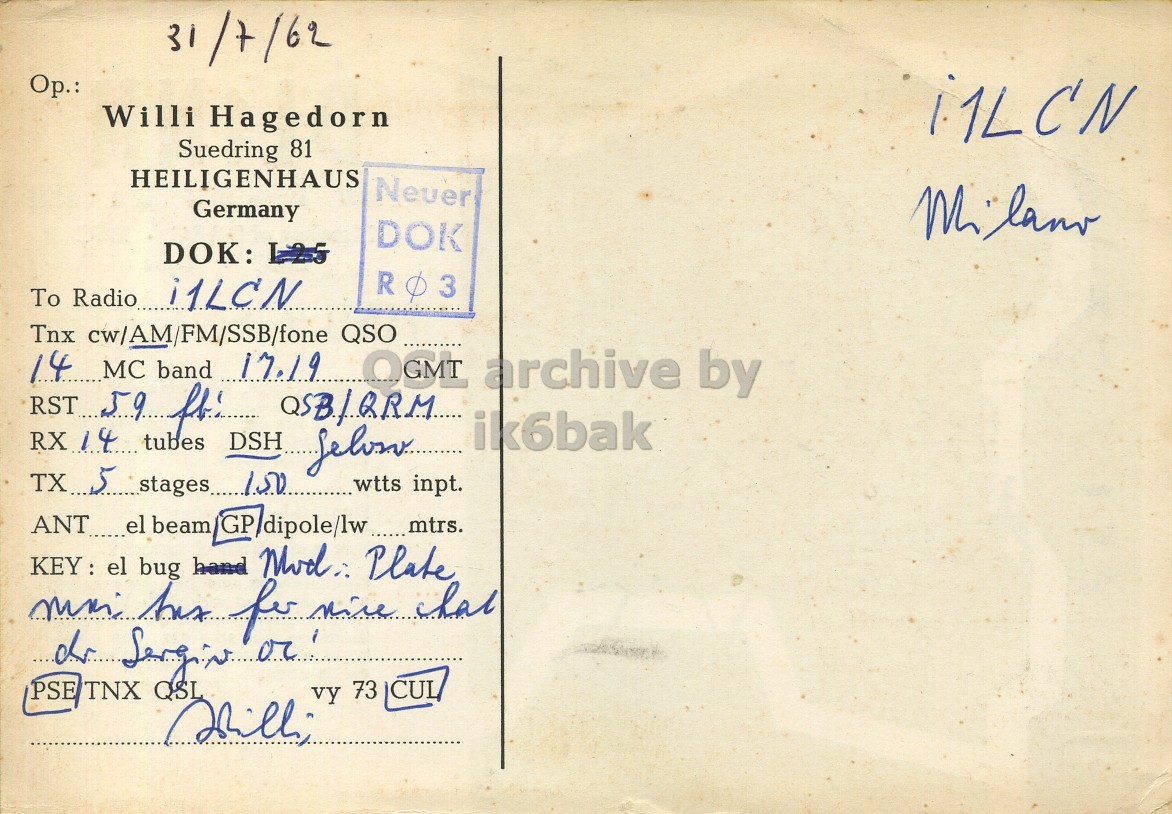 31/7/62
Op.:
Willi Hagedorn
Suedring 81
HEILIGENHAUS
Germany
DOK: L25
Neuer
DOK
R Ø 3
To Radio i1LCN
Tnx cw/AM/FM/SSB/fone QSO
14 MC band 17.19 GMT
RST 59 fb! QSB/QRM
RX 14 tubes DSH Geloso
TX 5 stages 150 wtts inpt.
ANT el beam/GP/dipole/lw mtrs.
KEY: el bug hand Mod.: Plate
mni tnx fer nice chat
dr Sergio oc!
PSE/TNX QSL vy 73 CUL
Willi
i1LCN
Milano
QSL archive by
ik6bak